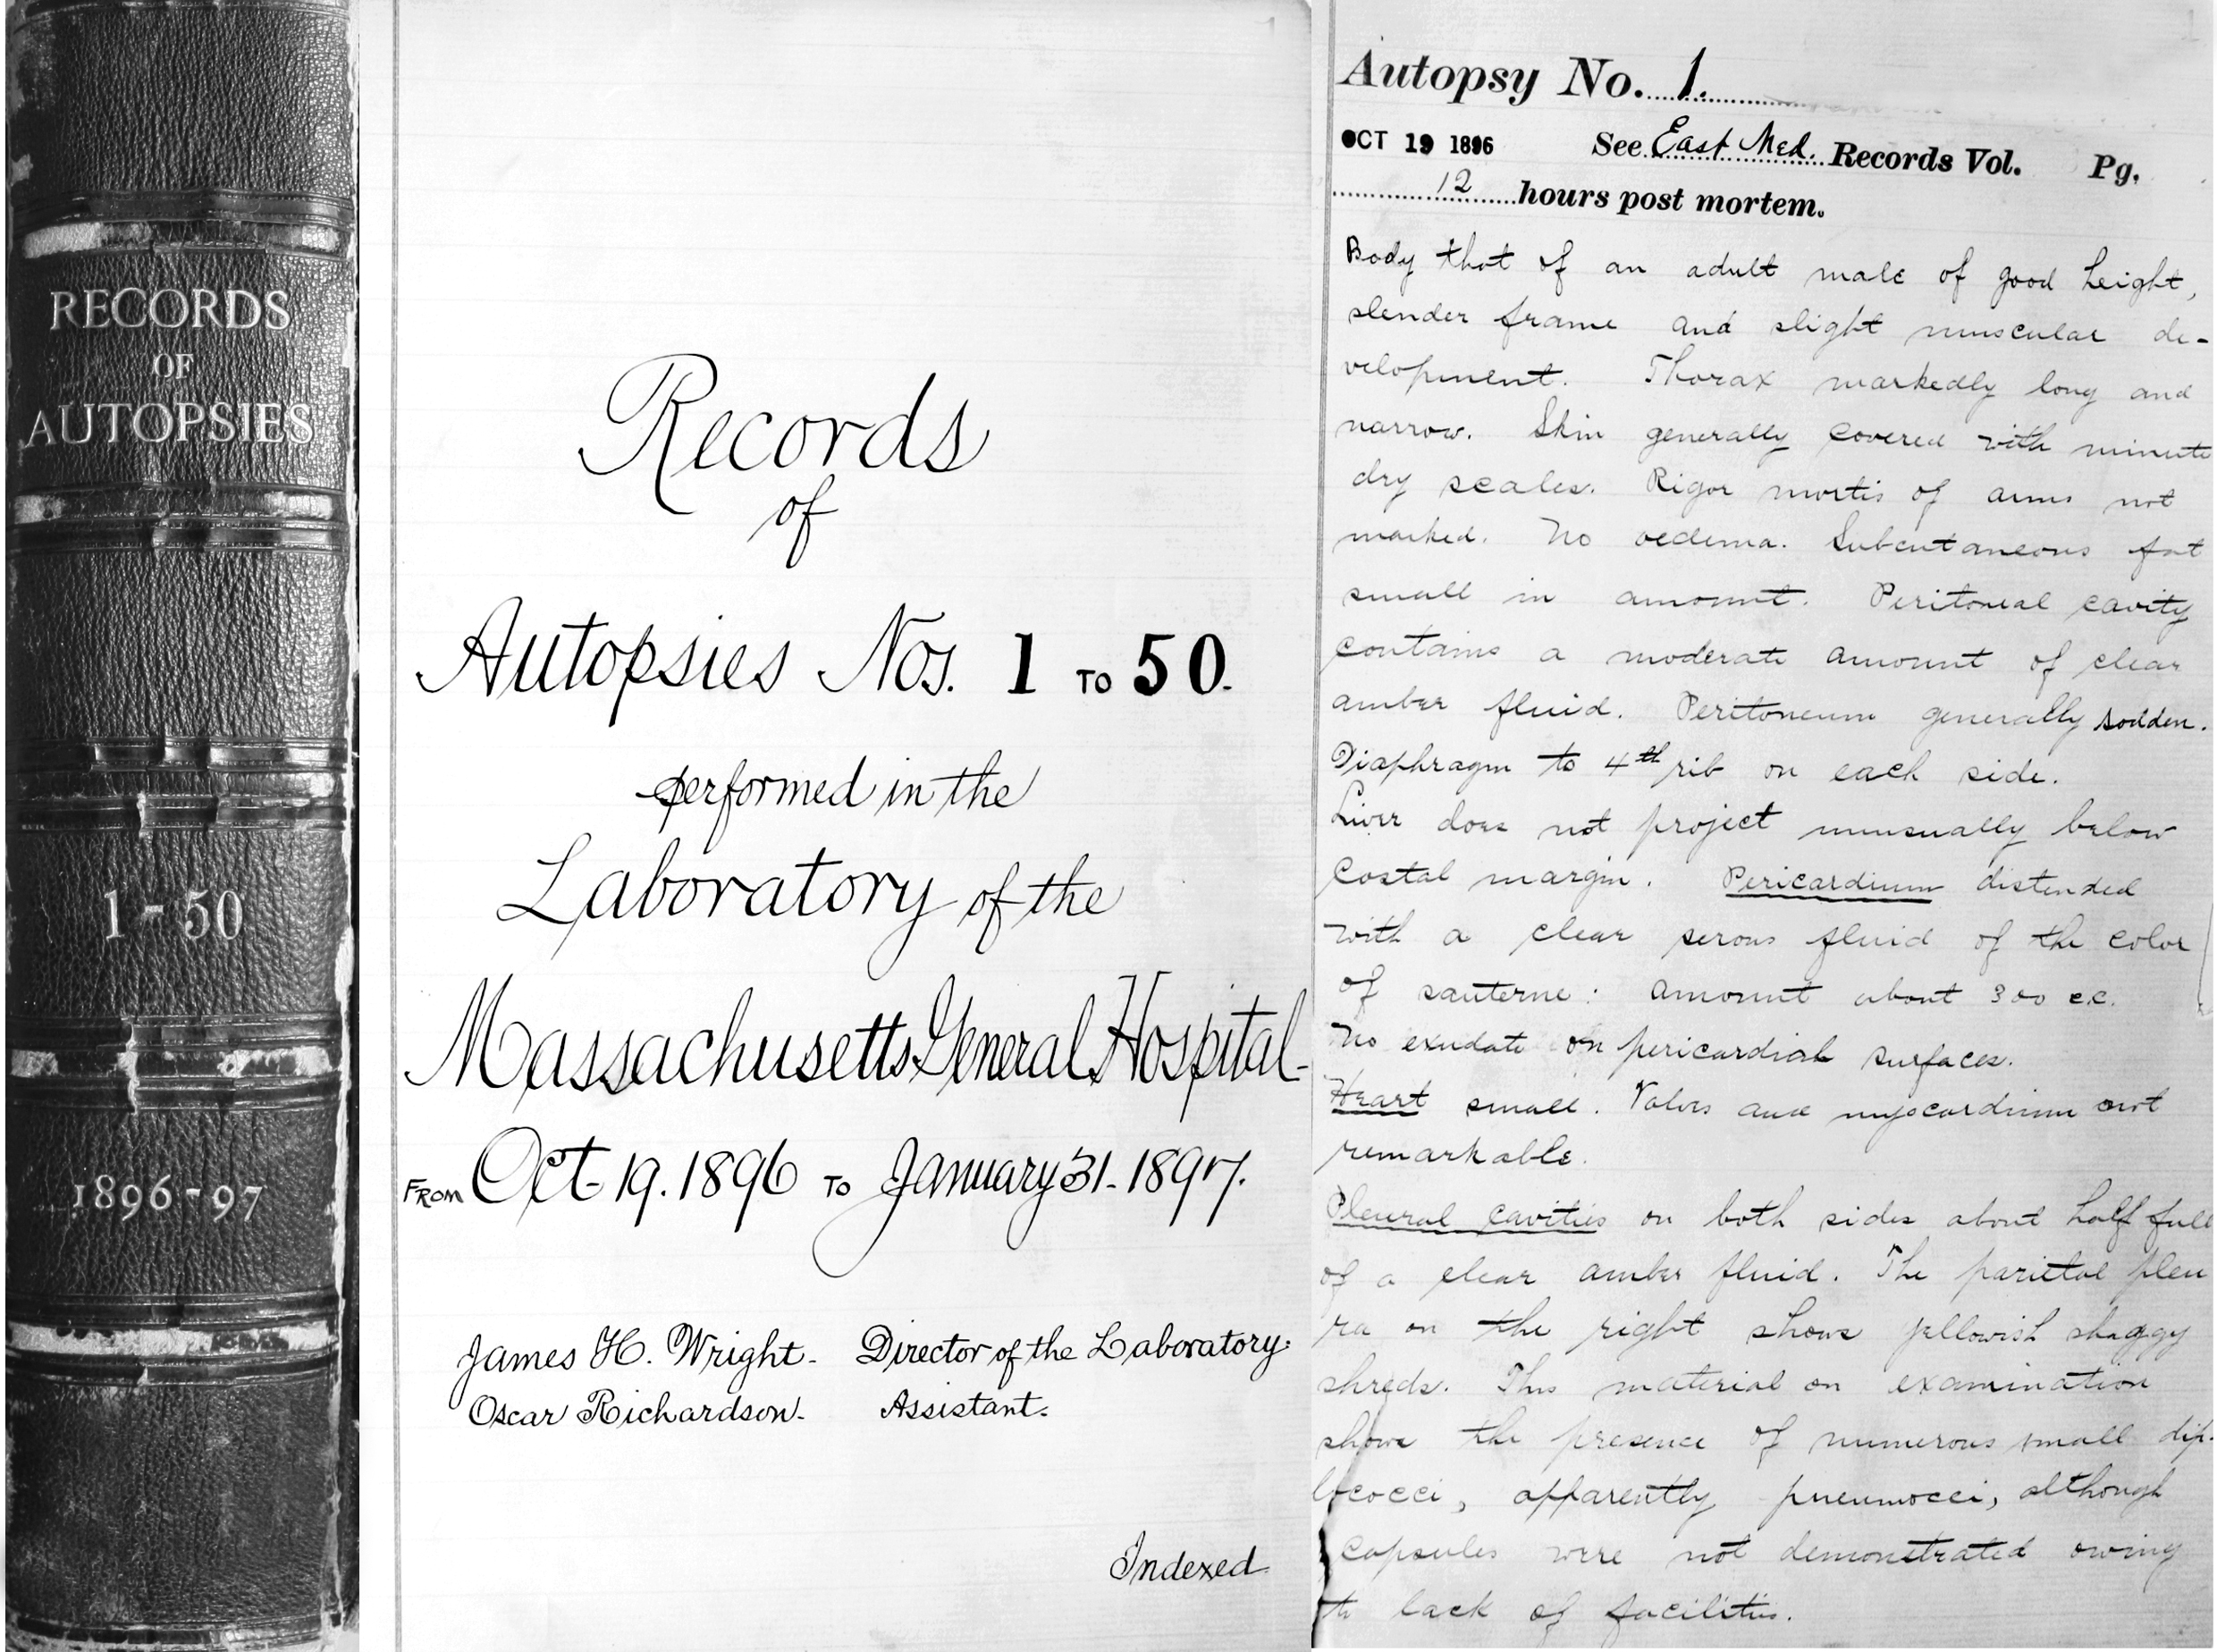 RECORDS
OF
AUTOPSIES
1-50
1896-97
Records
of
Autopsies Nos. 1 TO 50.
performed in the
Laboratory of the
Massachusetts General Hospital-
FROM Oct. 19. 1896 TO January 31-1897.
James H. Wright- Director of the Laboratory.
Oscar Richardson. Assistant.
Indexed
1
Autopsy No. 1.
OCT 19 1896 See East Med. Records Vol. Pg.
12 hours post mortem.
Body that of an adult male of good height,
slender frame and slight muscular de-
velopment. Thorax markedly long and
narrow. Skin generally covered with minute
dry scales. Rigor mortis of arms not
marked. No oedema. Subcutaneous fat
small in amount. Peritoneal cavity
contains a moderate amount of clear
amber fluid. Peritoneum generally sodden.
Diaphragm to 4th rib on each side.
Liver does not project unusually below
costal margin. Pericardium distended
with a clear serous fluid of the color
of sauterne: amount about 300 c.c.
No exudate on pericardial surfaces.
Heart small. Valves and myocardium not
remarkable.
Pleural cavities on both sides about half full
of a clear amber fluid. The parietal pleu
ra on the right shows yellowish shaggy
shreds. This material on examination
shows the presence of numerous small dip-
lococci, apparently pneumocci, although
capsules were not demonstrated owing
to lack of facilities.